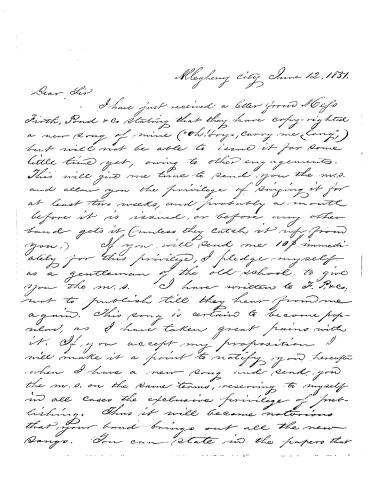 Allegheny City June 12, 1851.
Dear Sir
I have just received a letter from Mess
Firth, Pond & Co stating that they have copy-righted
a new song of mine ("Oh! boys, carry me 'long")
but will not be able to issue it for some
little time yet, owing to other engagements.
This will give me time to send you the m.s.
and allow you the privilege of singing it for
at least two weeks, and probably a month
before it is issued, or before any other
band gets it (unless they catch it up from
you.) If you will send me 10$ immedi-
ately for this privilege, I pledge myself
as a gentleman of the old school, to give
you the m.s. I have written to F. P. & Co.
not to publish till they hear from me
again. This song is certain to become pop-
ular, as I have taken great pains with
it. If you accept my proposition I
will make it a point to notify you hereafter
when I have a new song and send you
the m.s. on the same terms, reserving to myself
in all cases the exclusive privilege of pub-
lishing. Thus it will become notorious
that your band brings out all the new
songs. You can state in the papers that